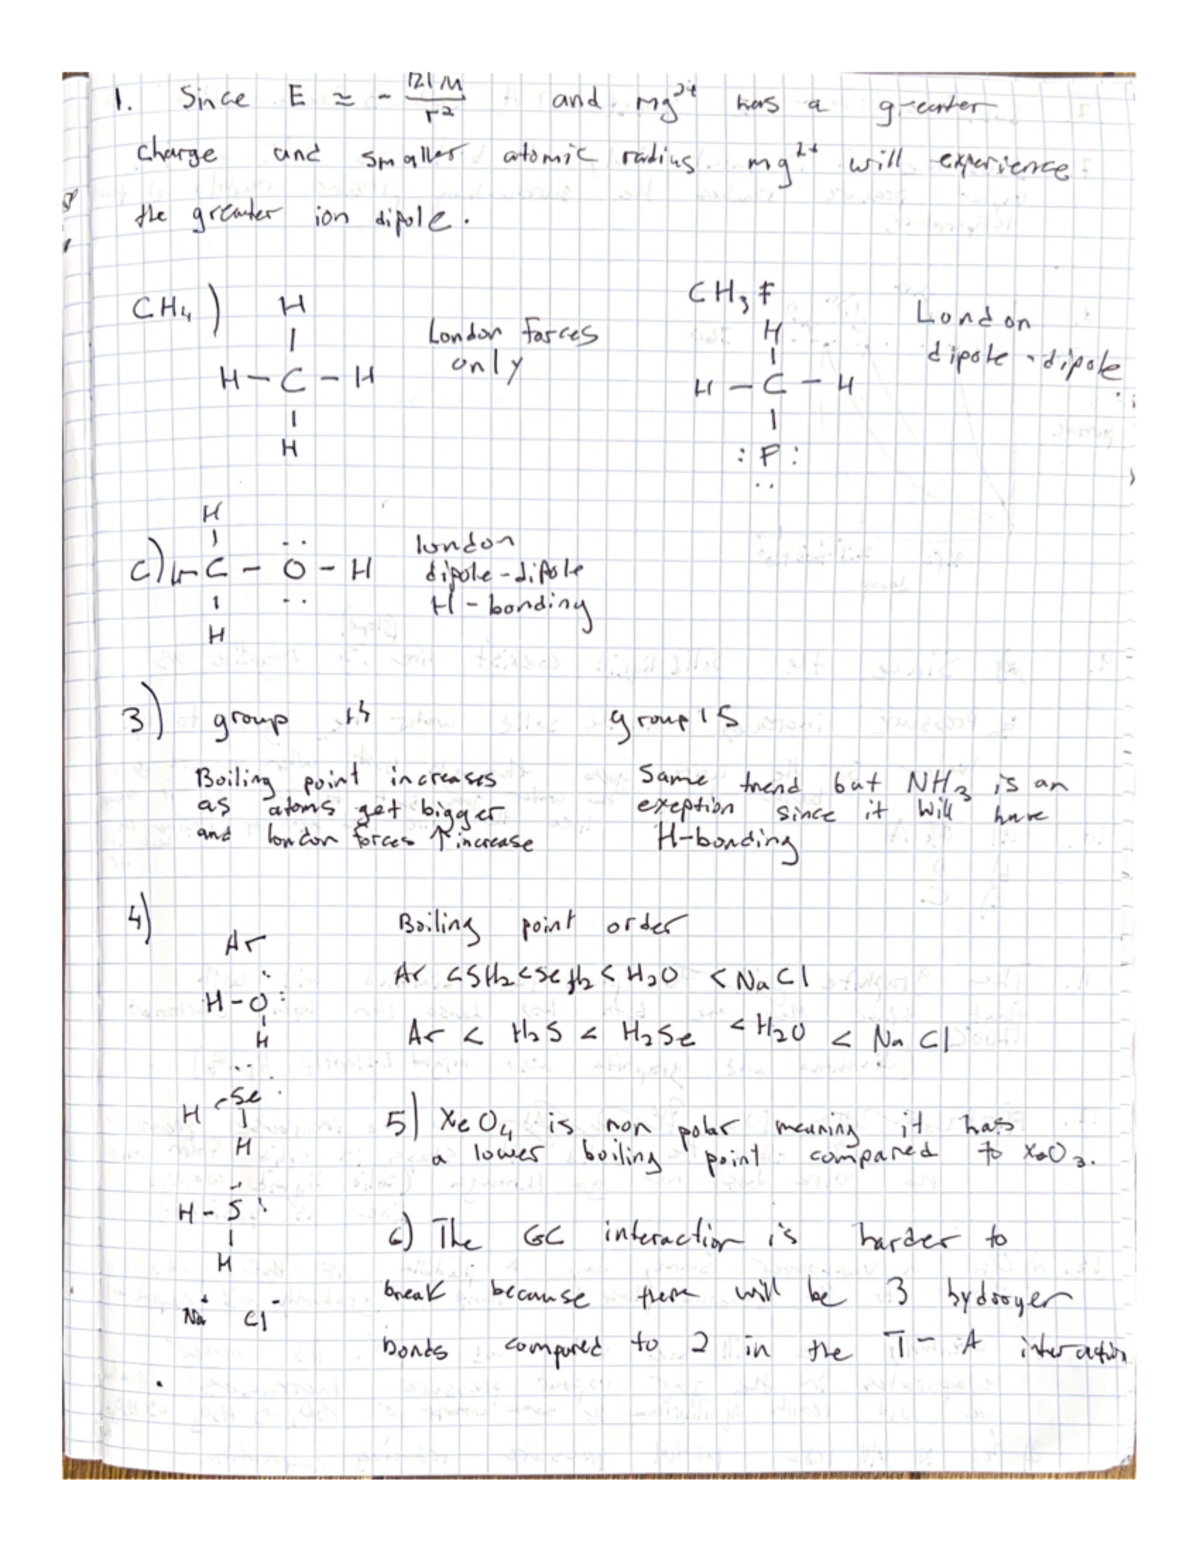 1. Since E ≈ - |z|μ / r² and mg²⁺ has a greater
charge and smaller atomic radius. mg²⁺ will experience
the greater ion dipole.
CH₄) H
|
H – C – H
|
H
London forces
only
CH₃F
H
|
H – C – H
|
: F :
. .
London
dipole - dipole
C) H
|
H – C – O – H
|
H
london
dipole-dipole
H - bonding
3) group 14
Boiling point increases
as atoms get bigger
and london forces ↑ increase
group 15
Same trend but NH₃ is an
exeption since it will have
H-bonding
4)
Ar
H - O :
|
H
H - Se :
|
H
H - S :
|
H
Na⁺ Cl⁻
Boiling point order
Ar < SH₂ < SeH₂ < H₂O < NaCl
Ar < H₂S < H₂Se < H₂O < NaCl
5) XeO₄ is non polar meaning it has
a lower boiling point compared to XeO₃.
6) The GC interaction is harder to
break because there will be 3 hydrogen
bonds compared to 2 in the T - A interaction
.